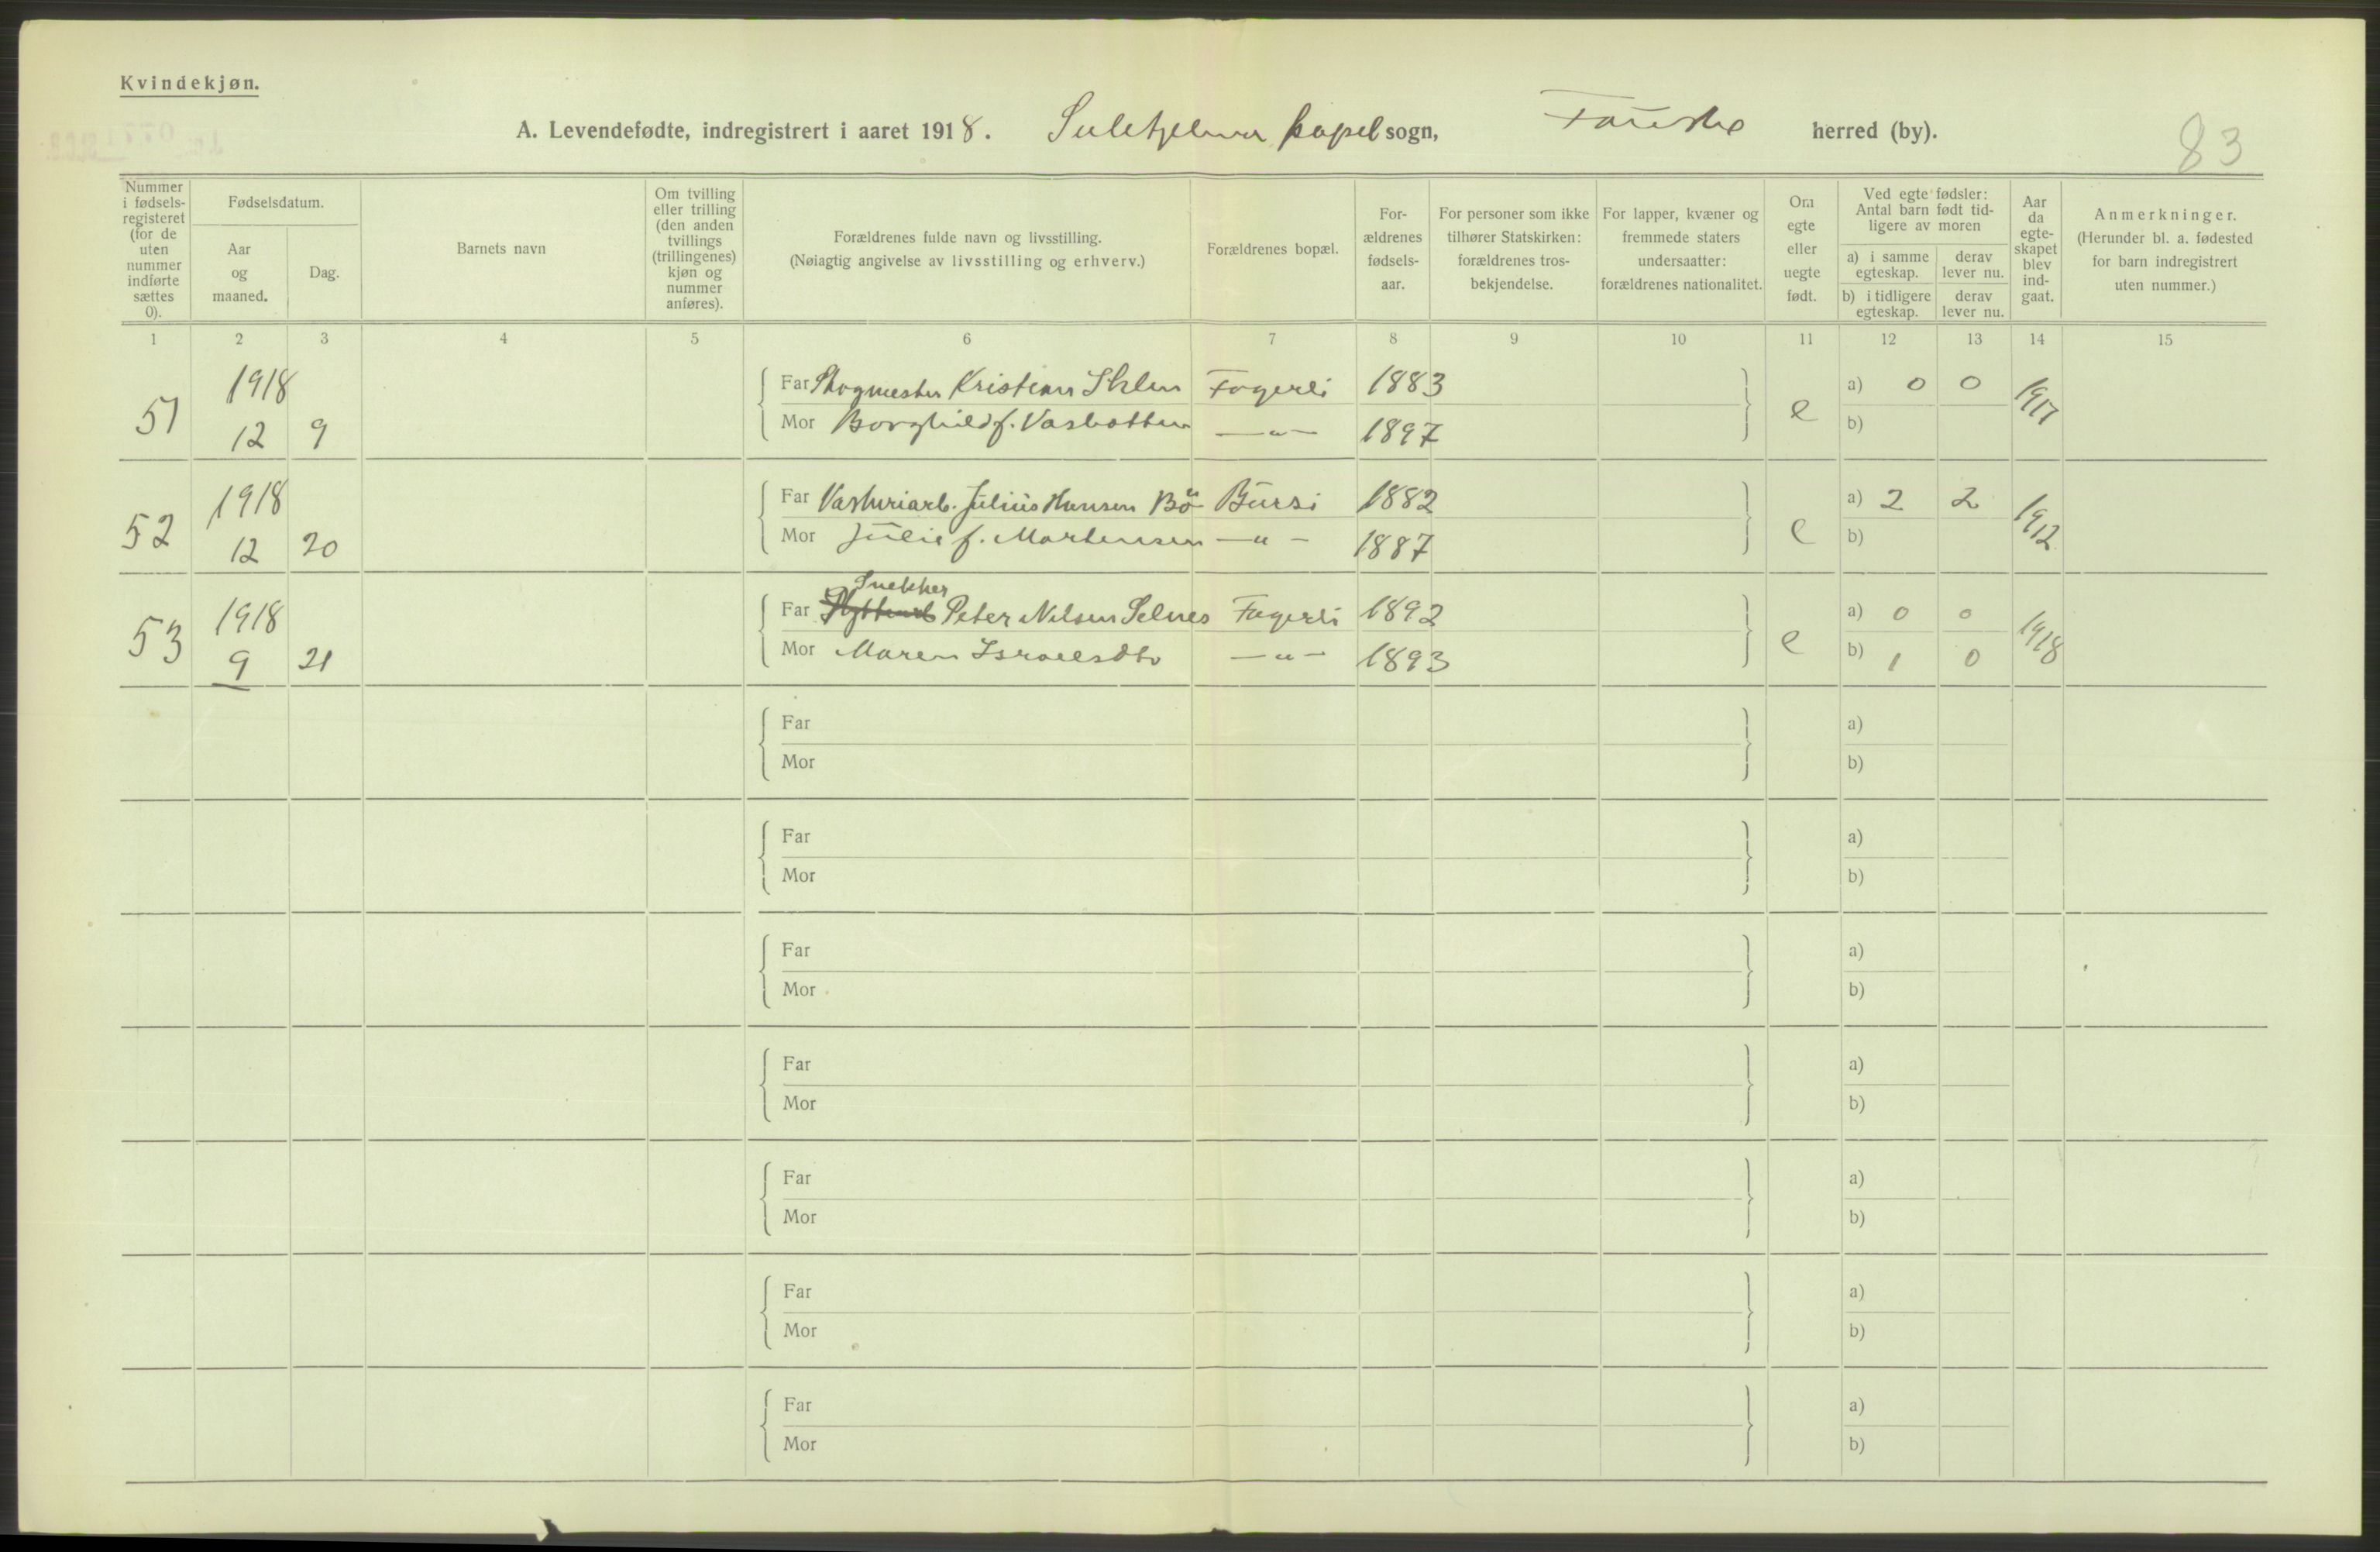 Kvindekjøn.
A. Levendefødte, indregistrert i aaret 1918. Sulitjelma kapel sogn, Fauske herred (by).
83
Nummer i fødsels-registeret (for de uten nummer indførte sættes 0).
Fødselsdatum.
Aar og maaned.
Dag.
Barnets navn
Om tvilling eller trilling (den anden tvillings (trillingenes) kjøn og nummer anføres).
Forældrenes fulde navn og livsstilling.
(Nøiagtig angivelse av livsstilling og erhverv.)
Forældrenes bopæl.
For-ældrenes fødsels-aar.
For personer som ikke tilhører Statskirken: forældrenes tros-bekjendelse.
For lapper, kvæner og fremmede staters undersaatter: forældrenes nationalitet.
Om egte eller uegte født.
Ved egte fødsler: Antal barn født tid-ligere av moren
a) i samme egteskap.
derav lever nu.
b) i tidligere egteskap.
derav lever nu.
Aar da egte-skapet blev ind-gaat.
Anmerkninger.
(Herunder bl. a. fødested for barn indregistrert uten nummer.)
1 2 3 4 5 6 7 8 9 10 11 12 13 14 15
51 1918 12 9 Far Kristian Fagerli 1883 e a) 0 0 1917
Mor Borghild f. Vasbotten —"— 1897 b)
52 1918 12 20 Far Julius Hansen Bø Bursi 1882 e a) 2 2 1912
Mor Julie f. Martensen —"— 1887 b)
Snekker
53 1918 9 21 Far Peter Nilsen Selnes Fagerli 1892 e a) 0 0 1918
Mor Maren Israelsdtr —"— 1893 b) 1 0
Far a)
Mor b)
Far a)
Mor b)
Far a)
Mor b)
Far a)
Mor b)
Far a)
Mor b)
Far a)
Mor b)
Far a)
Mor b)